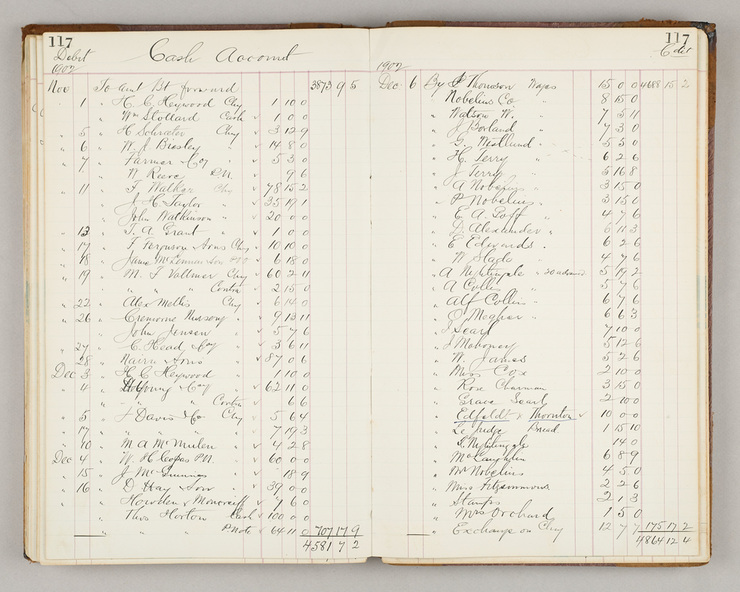 117
Debit
Cash Account
1902
Nov To Amt Bt forward 3873 9 5
1 " H. C. Heywood Chq 1 10 0
" Wm Stollard Cash 1 0 0
5 " H Schroeter Chq 3 12 9
6 " W. J. Beasley " 14 8 0
7 " Farmer & Coy " 5 3 0
" N. Reeve P.N. 9 6
11 " F. Walker Chq 78 15 2
" J. H. Taylor " 35 19 1
" John Watkinson " 20 0 0
13 " T. A. Grant " 1 0 0
17 " T. Ferguson & Sons Chq 10 10 0
18 " James McLennan 6 18 0
19 " M. F. Vollmer Chq 60 2 11
" " " Contra 2 15 0
22 " Alex Mellis Chq 6 14 0
26 " Nursery " 9 13 11
" John Jensen " 5 7 6
27 " C. Head & Coy " 3 6 11
28 " Nairn & Sons " 87 0 6
Dec 3 " H. C. Heywood 1 10 0
" 4 " Young & Coy " 62 11 0
" " " Contra 6 6
" 5 " J Davis & Co Chq 5 6 4
" 17 " " " " 7 19 3
" 10 " M. A. McMullen " 4 2 8
Dec 4 " W. H. P.N. 60 0 0
" 15 " J. 18 9
" 16 " D. Hay & Son " 39 0 0
" Howden & Moncrieff 4 6 0
" Thos Horton Cash 100 0 0
" " " P Note 64 11 0 707 17 9
4581 7 2
117
Cr
1902
Dec 6 By P Thomson Wages 15 0 0 4688 15 2
" Nobelius Co " 8 15 0
" Watson W. " 7 5 11
" J Borland " 7 3 0
" G. Westlund " 5 5 0
" H. Terry " 6 2 6
" J Terry " 5 16 8
" A Nobelius " 3 15 0
" P Nobelius " 3 15 0
" E. A. Goff " 4 7 6
" D. Alexander " 6 11 3
" E Edwards " 6 2 6
" W Slade " 4 7 6
" A Nightingale " 5 19 2
" A Collins " 5 7 6
" Alf Collins 6 7 6
" J Meagher " 6 6 3
" J Searl 7 10 0
" J Mahoney 5 12 6
" W. James 5 2 6
" Miss Cox 2 10 0
" Rose Charman 3 15 0
" Grace Searl 2 10 0
" Edfeldt & Thornton 10 0 0
" Le Judge Bread 1 15 10
" S. Nightingale 14 0
" McLaughlin 6 8 9
" Mr Nobelius 4 5 0
" Miss Fitzsimmons 2 2 6
" Stamps 2 1 3
" Mrs Orchard 1 5 0
" Exchange on Chq 12 7 7 175 17 2
4864 12 4